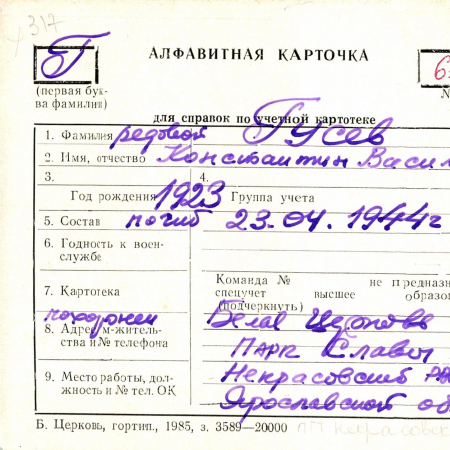 317
Г
АЛФАВИТНАЯ КАРТОЧКА
6
(первая бук-
ва фамилии)
№
для справок по учетной картотеке
1. Фамилия редовой Гусев
2. Имя, отчество Константин Васил
3.
4.
Год рождения 1923 Группа учета
5. Состав погиб 23.04.1944г
6. Годность к воен-
службе
7. Картотека
Команда № не предназн
спецучет высшее образо
(подчеркнуть)
похоронен Белая Церковь
8. Адрес м-житель-
ства и № телефона
парк Славы
9. Место работы, дол-
жность и № тел. ОК
Некрасовский
Ярославской об
Б. Церковь, гортип., 1985, з. 3589—20000